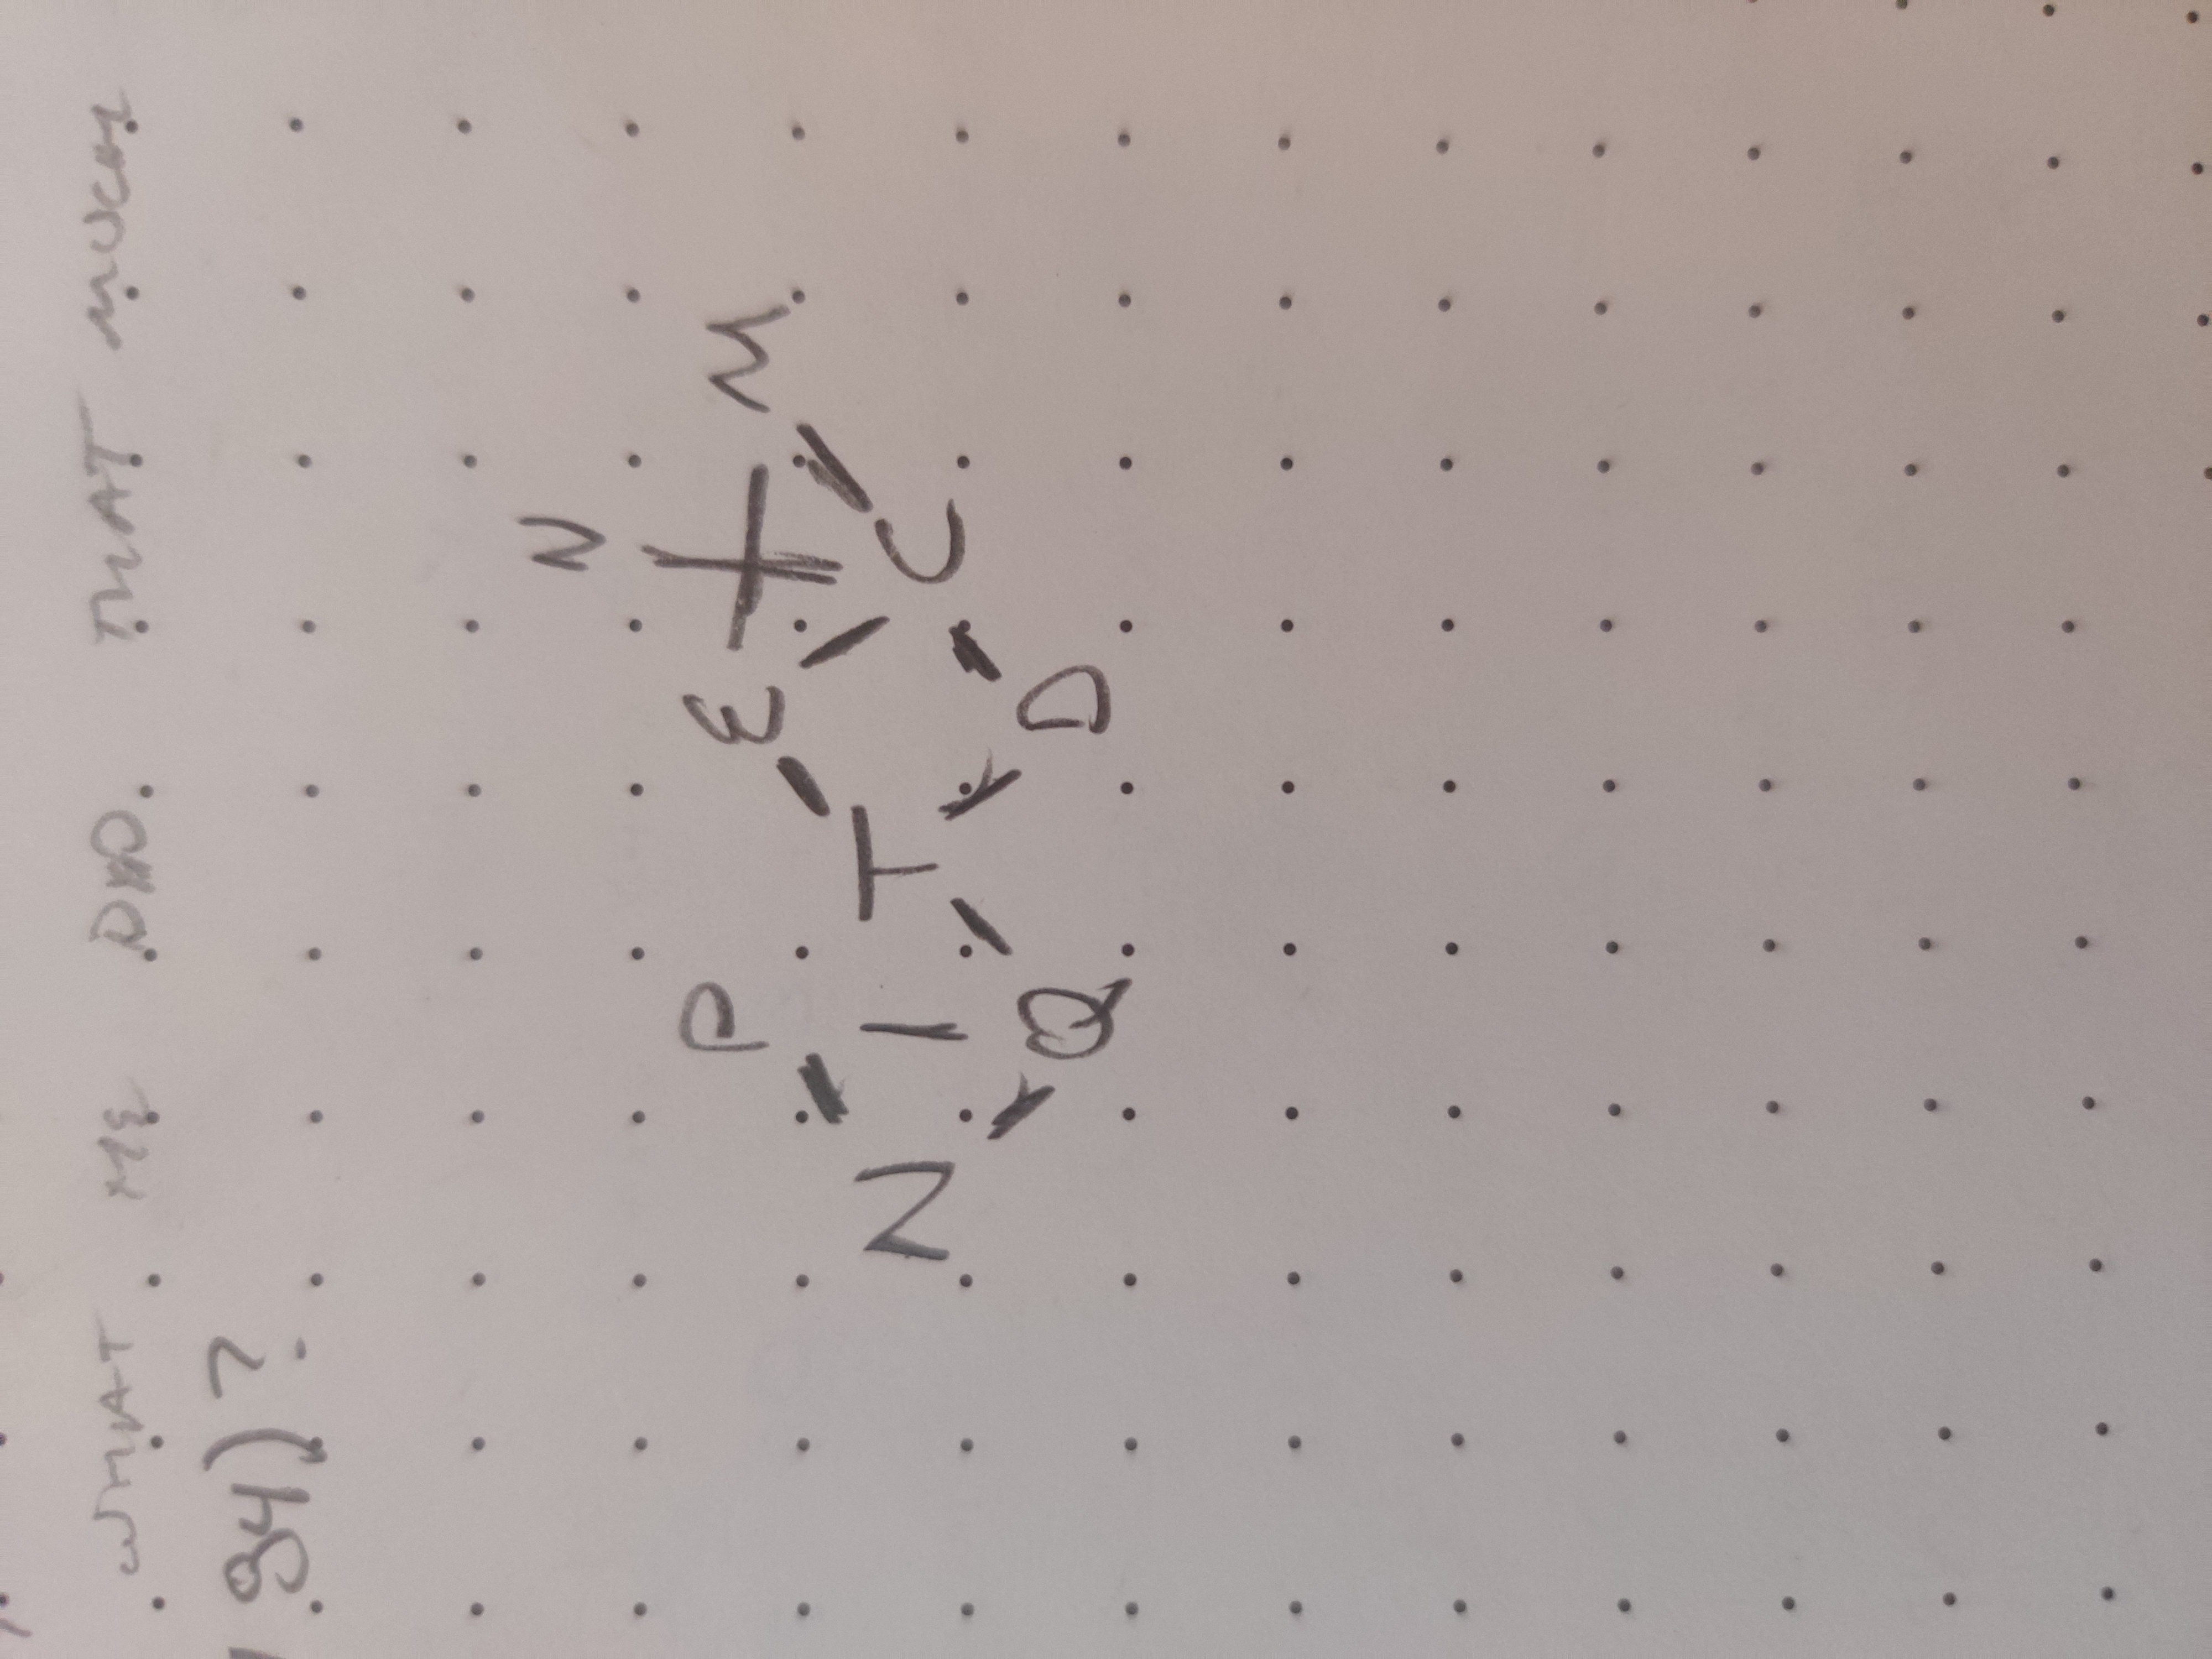 WHAT ME DID THAT MUCH
94)?
N
P E M
N T C
Q D